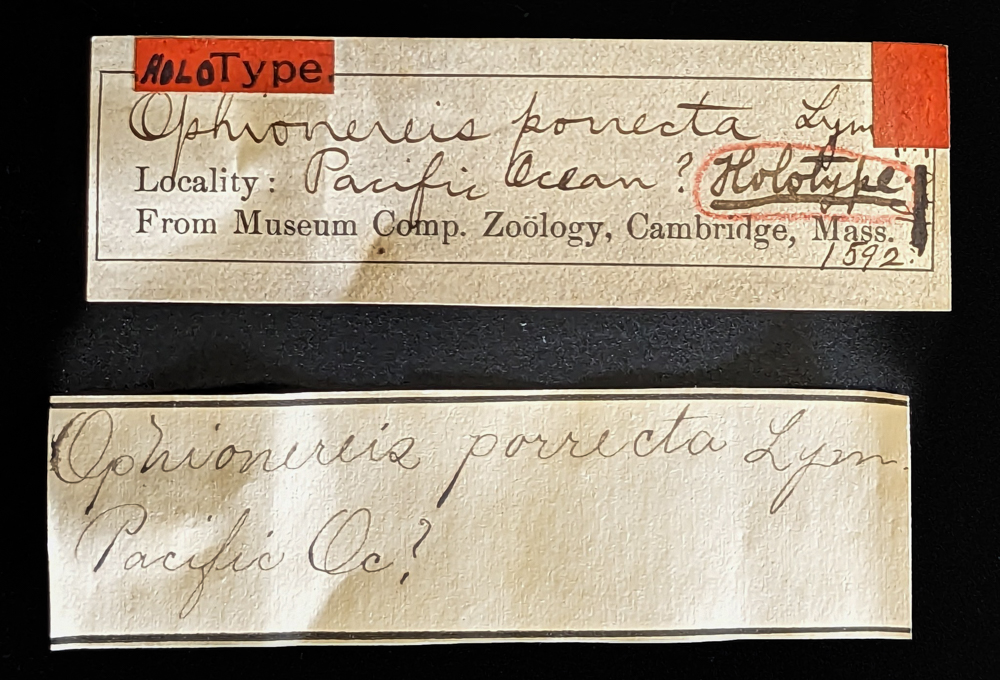 HOLOType.
Ophionereis porrecta Lym
Locality: Pacific Ocean? Holotype
From Museum Comp. Zoölogy, Cambridge, Mass.
1592.
Ophionereis porrecta Lym.
Pacific Oc?